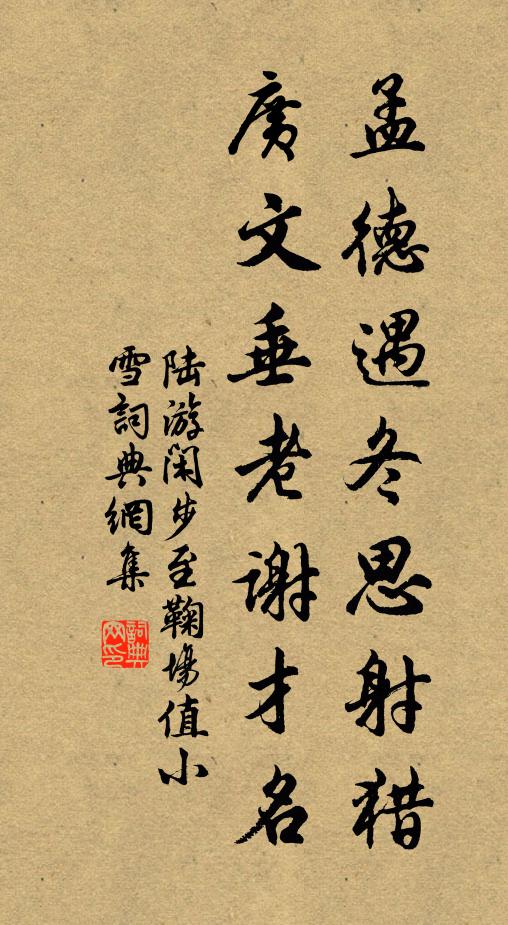 孟德遇冬思射猎
广文垂老谢才名
陆游闲步至鞠場值小
雪詞典網集
詞典网印